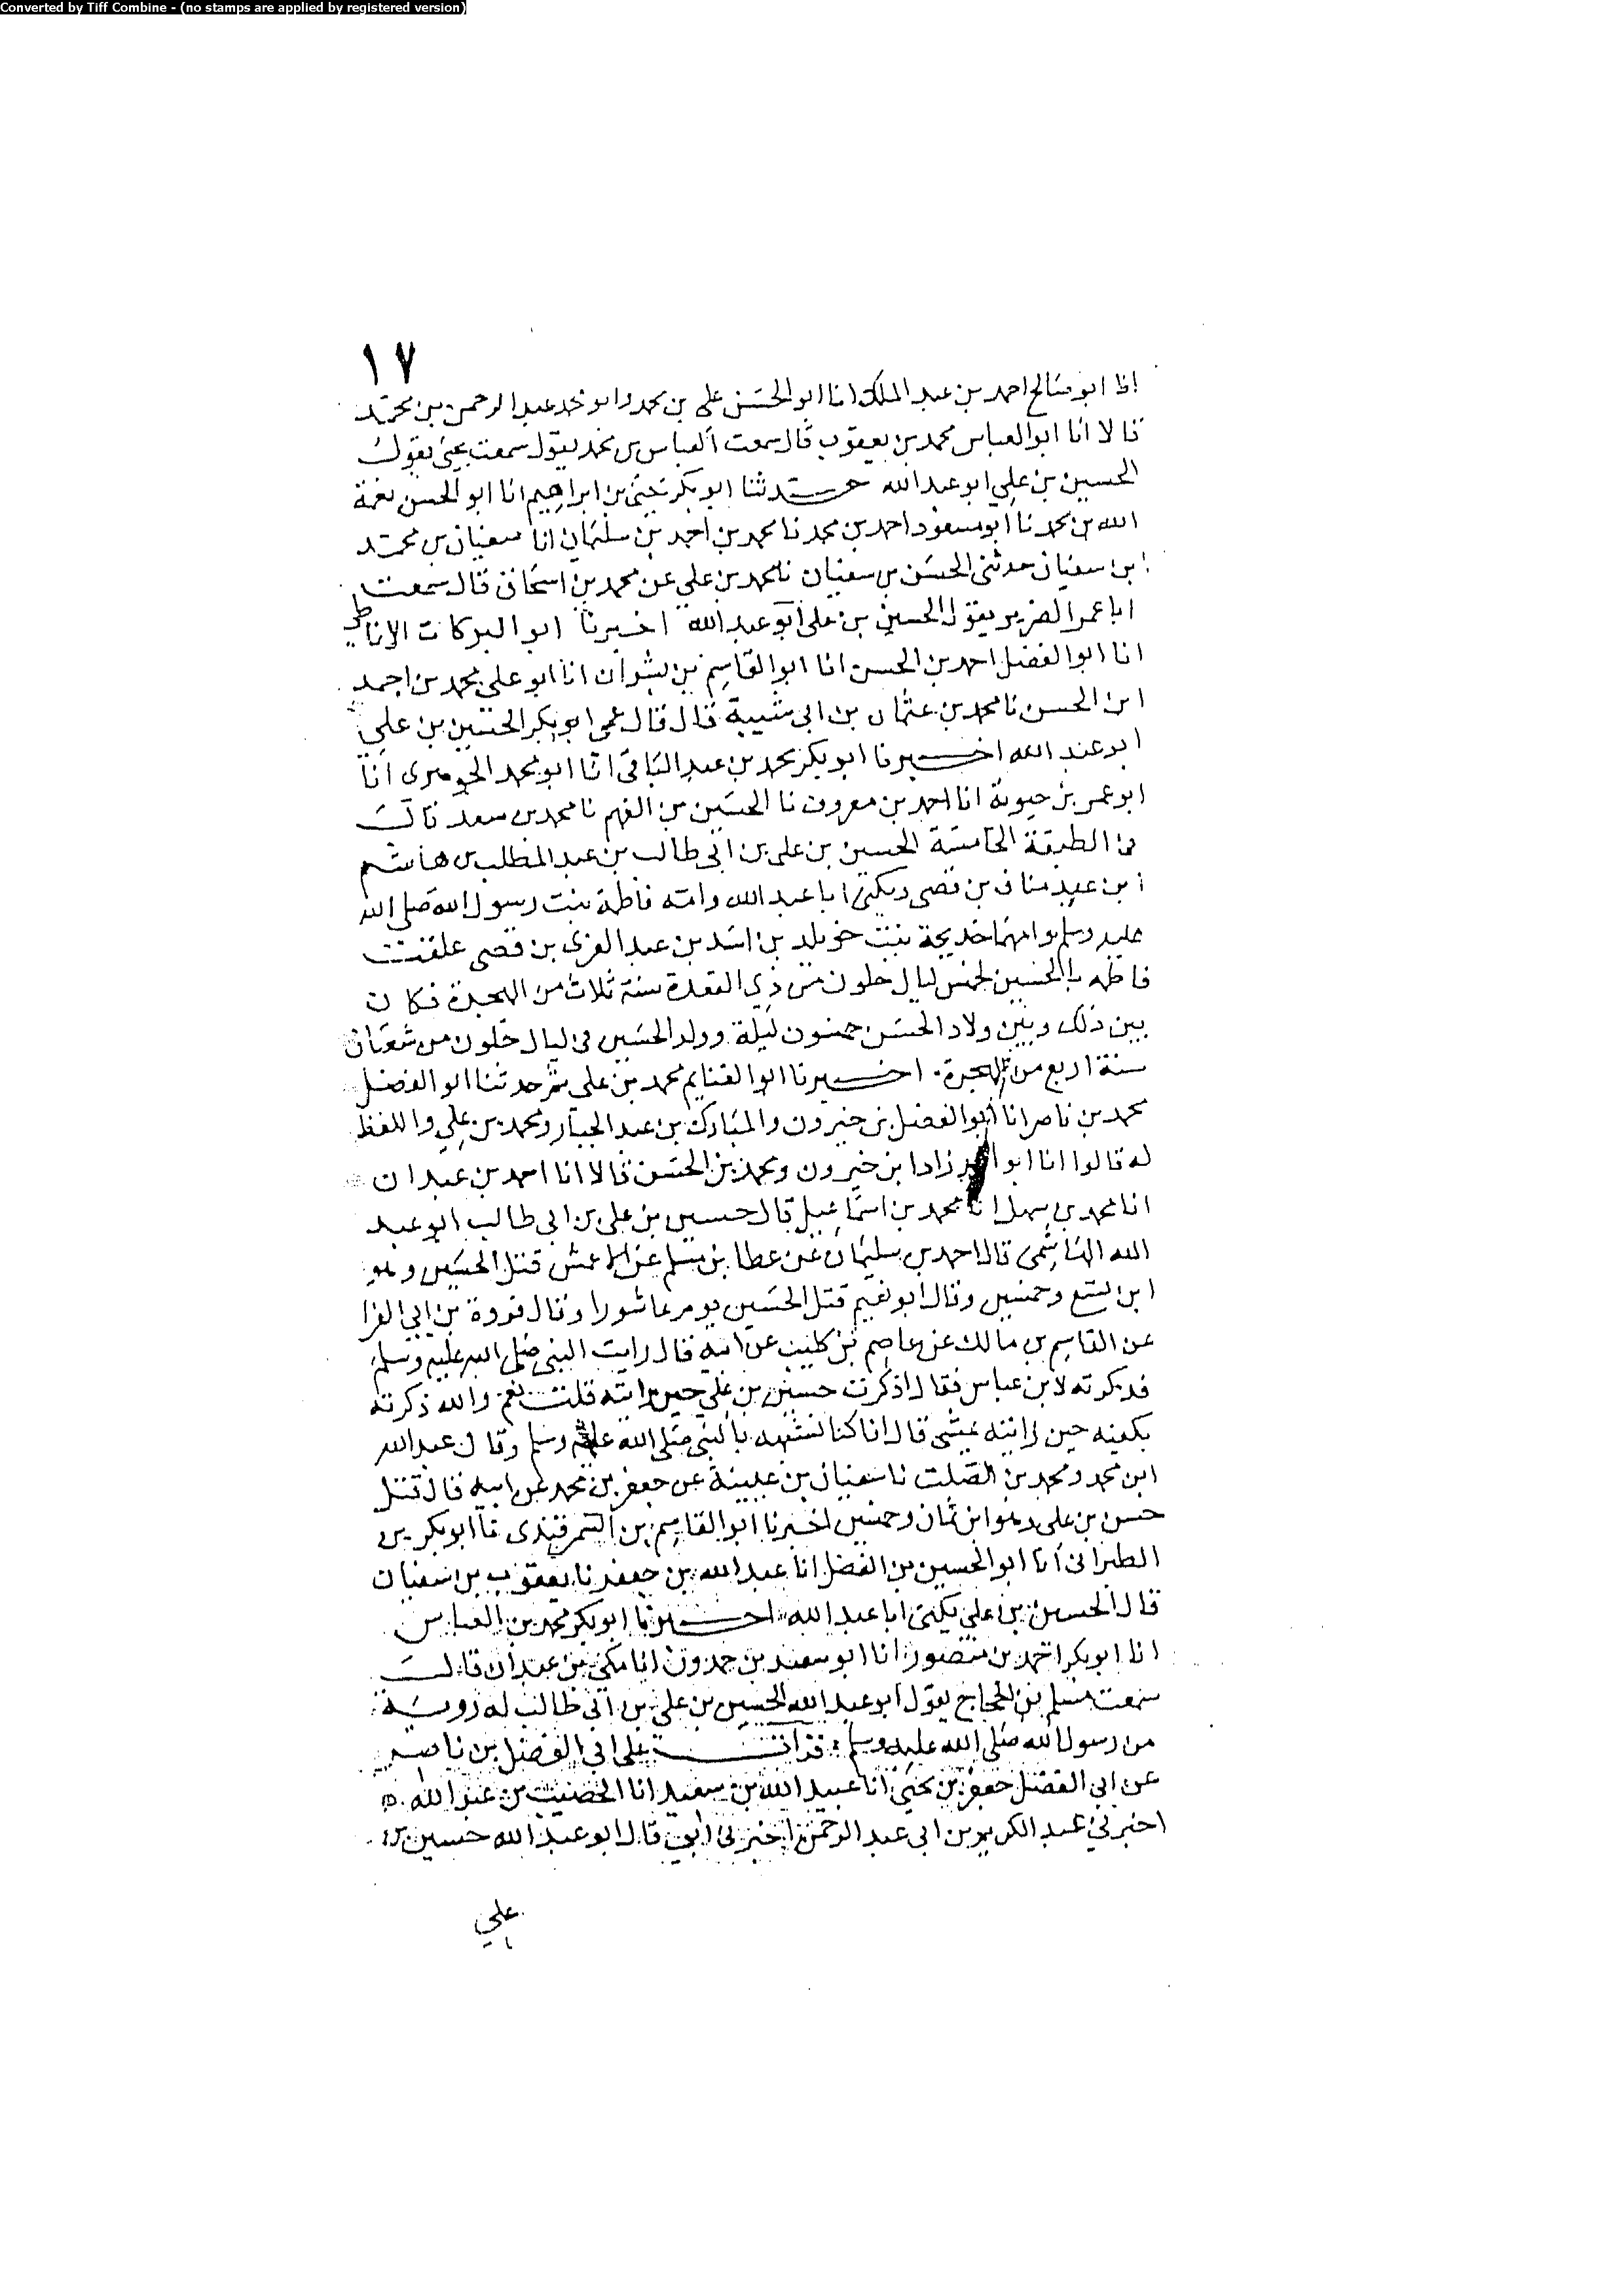 Converted by Tiff Combine - (no stamps are applied by registered version)
١٧
انا ابو صالح احمد بن عبد الملك انا ابو الحسن علي بن محمد وابو محمد عبد الرحمن بن محمد
قالا انا ابو العباس محمد بن يعقوب قال سمعت العباس بن محمد يقول سمعت يحيى يقول
الحسين بن علي ابو عبد الله حدثنا ابو بكر يحيى بن ابراهيم انا ابو الحسن نعمة
الله بن محمد نا ابو مسعود احمد بن محمد نا محمد بن احمد بن سليمان انا سفيان بن محمد
ابن سفيان حدثني الحسن بن سفيان نا محمد بن علي عن محمد بن اسحاق قال سمعت
ابا عمر الضرير يقول الحسين بن علي ابو عبد الله اخبرنا ابو البركات الانماطي
انا ابو الفضل احمد بن الحسن انا ابو القاسم بن بشران انا ابو علي محمد بن احمد
ابن الحسن نا محمد بن عثمان بن ابي شيبة قال قال عمي ابو بكر الحسين بن علي
ابو عبد الله اخبرنا ابو بكر محمد بن عبد الباقي انا ابو محمد الجوهري انا
ابو عمر بن حيوية انا احمد بن معروف نا الحسين بن الفهم نا محمد بن سعد قال
في الطبقة الخامسة الحسين بن علي بن ابي طالب بن عبد المطلب بن هاشم
ابن عبد مناف بن قصى ويكنى ابا عبد الله وامه فاطمة بنت رسول الله صلى الله
عليه وسلم وامها خديجة بنت خويلد بن اسد بن عبد العزى بن قصى علقت
فاطمة بالحسين لخمس ليال خلون من ذي القعدة سنة ثلاث من الهجرة فكان
بين ذلك وبين ولاد الحسن خمسون ليلة وولد الحسين في ليال خلون من شعبان
سنة اربع من الهجرة اخبرنا ابو الغنايم محمد بن علي ثم حدثنا ابو الفضل
محمد بن ناصر انا ابو الفضل بن خيرون والمبارك بن عبد الجبار ومحمد بن علي واللفظ
له قالوا انا ابو احمد زاد ابن خيرون ومحمد بن الحسن قالا انا احمد بن عبدان
انا محمد بن سهل انا محمد بن اسماعيل قال حسين بن علي بن ابي طالب ابو عبد
الله الهاشمى قال احمد بن سليمان عن عطا بن مسلم عن الاعمش قتل الحسين وهو
ابن تسع وخمسين وقال ابو نعيم قتل الحسين يوم عاشورا وقال فروة بن ابي المغرا
عن القاسم بن مالك عن عاصم بن كليب عن ابيه قال رايت النبى صلى الله عليه وسلم
فذكرته لابن عباس فقال اذكرت حسين بن علي حين رايته قلت نعم والله ذكرته
بكفيه حين رايته يمشى قال انا كنا نشبهه بالنبي صلى الله عليه وسلم وقال عبد الله
ابن محمد ومحمد بن الصلت نا سفيان بن عيينة عن جعفر بن محمد عن ابيه قال قتل
حسن بن علي وهو ابن ثمان وخمسين اخبرنا ابو القاسم بن السمرقندى نا ابو بكر بن
الطبراني انا ابو الحسين بن الفضل انا عبد الله بن جعفر نا يعقوب بن سفيان
قال الحسين بن علي يكنى ابا عبد الله اخبرنا ابو بكر محمد بن العباس
انا ابو بكر احمد بن منصور انا ابو سعيد بن حمدون انا مكي بن عبدان قال
سمعت مسلم بن الحجاج يقول ابو عبد الله الحسين بن علي بن ابي طالب له روية
من رسول الله صلى الله عليه وسلم قرات على ابي الفضل بن ناصر
عن ابي الفضل جعفر بن يحيى انا عبيد الله بن سعيد انا الخصيب بن عبد الله
اخبرني عبد الكريم بن ابي عبد الرحمن اخبرني ابي قال ابو عبد الله حسين بن
علي